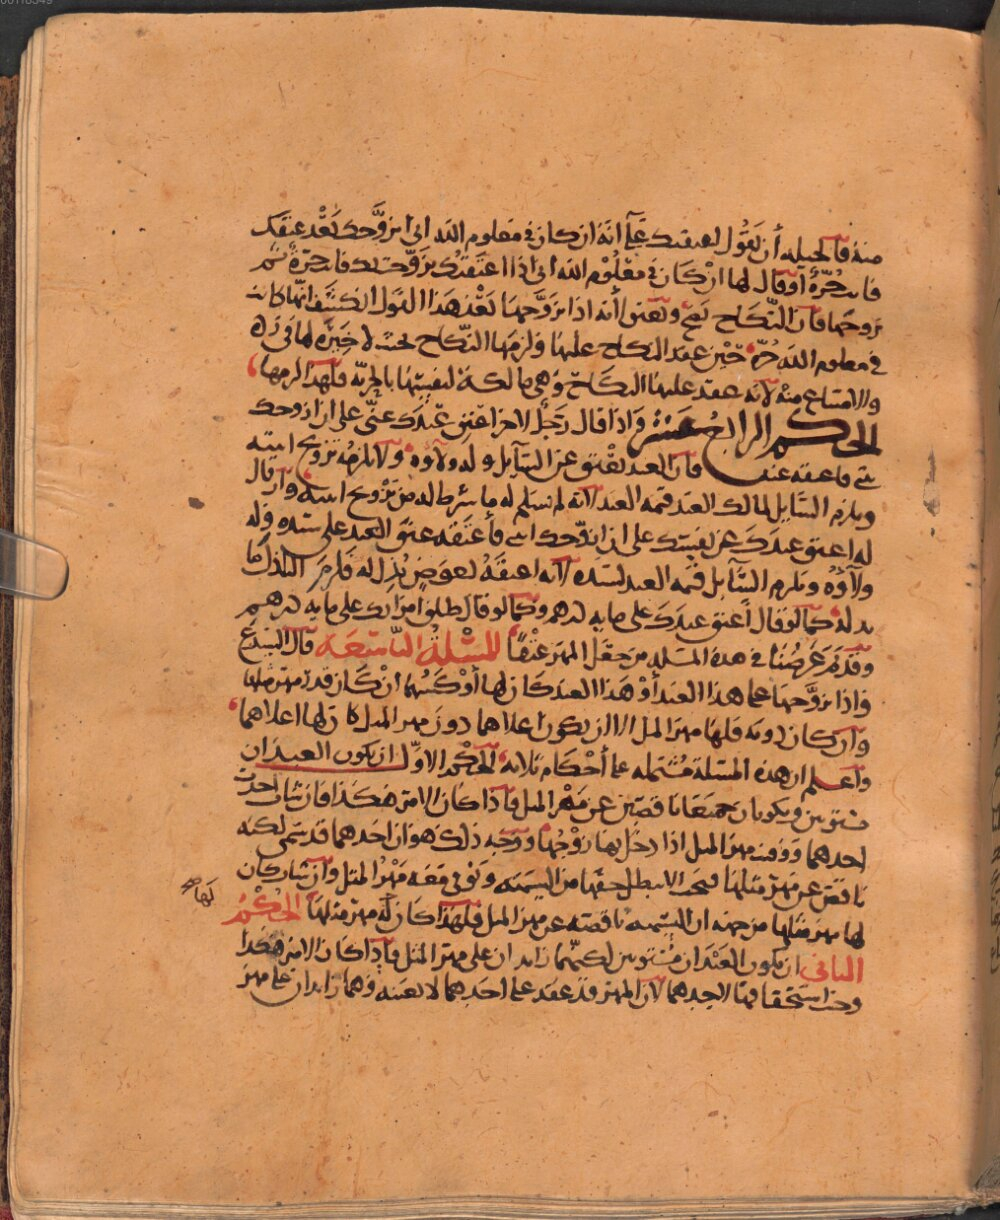 منه فالحيلة أن يقول لعبدك على أنه ان كان في معلوم الله اني اتزوجك بعد عتقك
فانت حرة أو قال لها ان كان في معلوم الله اني اذا اعتقتك تزوجتك فانت حرة ثم
تزوجها فان النكاح يصح وتعتق لأنه اذا تزوجها بعد هذا القول انكشف انها كانت
في معلوم الله حرة حين عقد النكاح عليها ولزمها النكاح بحيث لا خيرة لها في رده
والامتناع منه لانه عقد عليها النكاح وهي مالكة لنفسها بالحرية فلهذا لزمها
الحكم الرابع عشر واذا قال رجل لاخر اعتق عبدك عني على ان ازوجك
بنتي فاعتقه عنه فان العبد يعتق عن السايل وله ولاوه ولا يلزمه تزويج ابنته
ويلزم السايل لمالك العبد قيمة العبد لانه لم يسلم له ما شرط له من تزويج ابنته وان قال
له اعتق عبدك عن نفسك على ان ازوجك ابنتي فأعتقه عتق العبد على سيده وله
ولاؤه ويلزم السآيل قيمة العبد لسيده لانه اعتقه لعوض بذل له فلزم الباذل ما
بذله كما لو قال أعتق عبدك على مايه درهم وكما لو قال طلق امراتك على مايه درهم
وقد تم غرضنا في هذه المسئلة من جعل المهر عتقا المسئلة التاسعة قال السيد ع
واذا تزوجها على هذا العبد أو هذا العبد كان لها أوكسهما ان كان قدر مهر مثلها
وان كان دونه فلها مهر المثل الا ان يكون اعلاهما دون مهر المثل كان لها اعلاهما
واعلم ان هذه المسئلة مشتملة على أحكام ثلاثة الحكم الاول ان يكون العبدان
مستويين ويكونان جميعا ناقصين عن مهر المثل فاذا كان الامر هكذا فان شات اخذت
احدهما ووفيت مهر المثل اذا دخل بها زوجها ووجه ذلك هو ان احدهما قد سمي لكنه
ناقص عن مهر مثلها فيجب الا يبطل حقها من التسمية وتوفي معه مهر المثل وان شا كان
لها مهر مثلها من جهة ان التسمية ناقصة عن مهر المثل فلهذا كان لها مهر مثلها الحكم
لها صح
الثاني ان يكون العبدان مستويين لكنهما زايدان على مهر المثل فاذا كان الامر هكذا
وجب استحقاقها لاحدهما لان المهر قد عقد على احدهما لا بعينه وهما زايدان على مهر